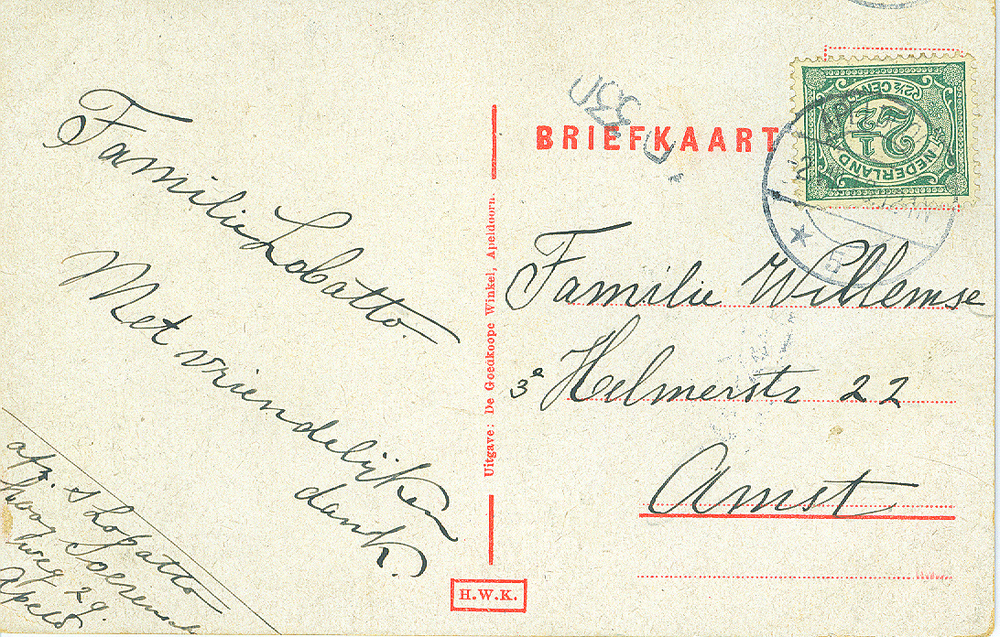 Familie Lobatto.
Met vriendelijken
dank.
afz. S Lobatto
Hoog Soerensche
weg 29.
Apeld
Uitgave: De Goedkoope Winkel, Apeldoorn.
H.W.K.
BRIEFKAART
NEDERLAND
2½
2½ CENT
Familie Willemse
3e Helmerstr 22
Amst